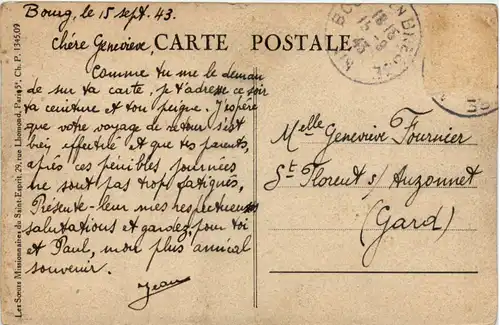 Bourg, le 15 sept. 43.
Chère Geneviève,
CARTE POSTALE
Comme tu me le deman
de sur ta carte, je t'adresse ce soir
ta ceinture et ton peigne. J'espère
que votre voyage de retour s'est
bien effectué et que tes parents,
après ces pénibles journées
ne sont pas trop fatigués,
Présente-leur mes respectueuses
salutations et gardez, pour toi
et Paul, mon plus amical
souvenir.
Jean
Melle Geneviève Fournier
St Florent s/ Auzonnet
(Gard)
Les Sœurs Missionnaires du Saint-Esprit, 29, rue Lhomond, Paris-5e. Ch. P. 1345.09